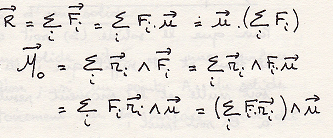 R⃗ = Σᵢ F⃗ᵢ = Σᵢ Fᵢ.u⃗ = u⃗.(Σᵢ Fᵢ)
M⃗ₒ = Σᵢ r⃗ᵢ ∧ F⃗ᵢ = Σᵢ r⃗ᵢ ∧ Fᵢu⃗
= Σᵢ Fᵢr⃗ᵢ ∧ u⃗ = (Σᵢ Fᵢr⃗ᵢ) ∧ u⃗